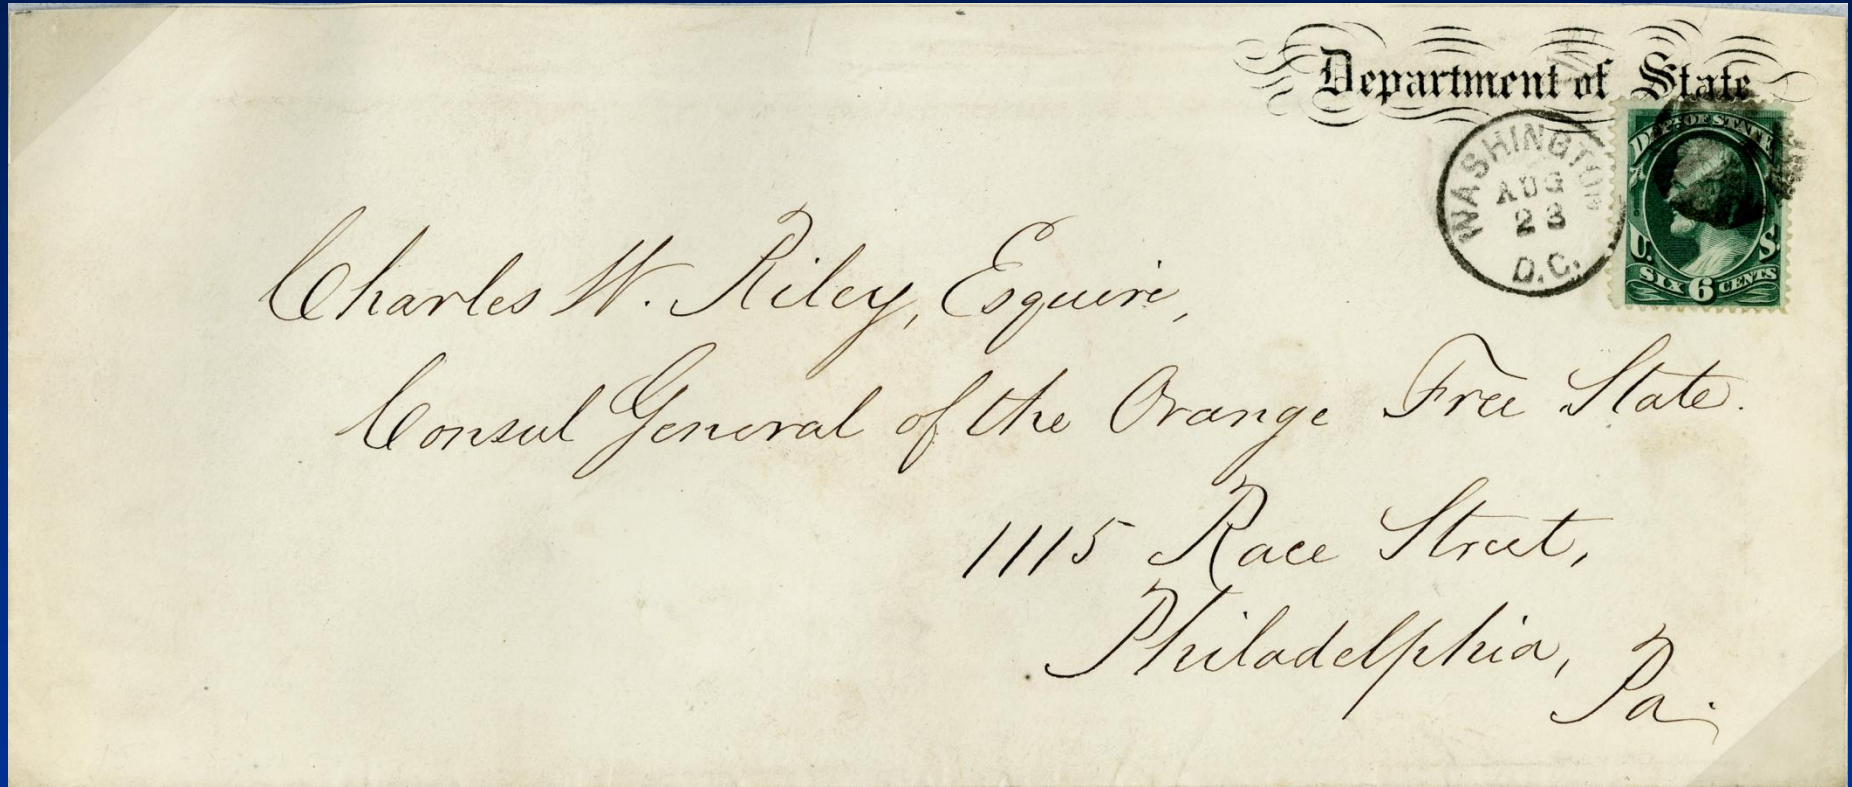 Department of State
WASHINGTON
AUG
23
D.C.
DEPT. OF STATE
U. S.
SIX 6 CENTS
Charles W. Riley, Esquire,
Consul General of the Orange Free State.
1115 Race Street,
Philadelphia,
Pa.